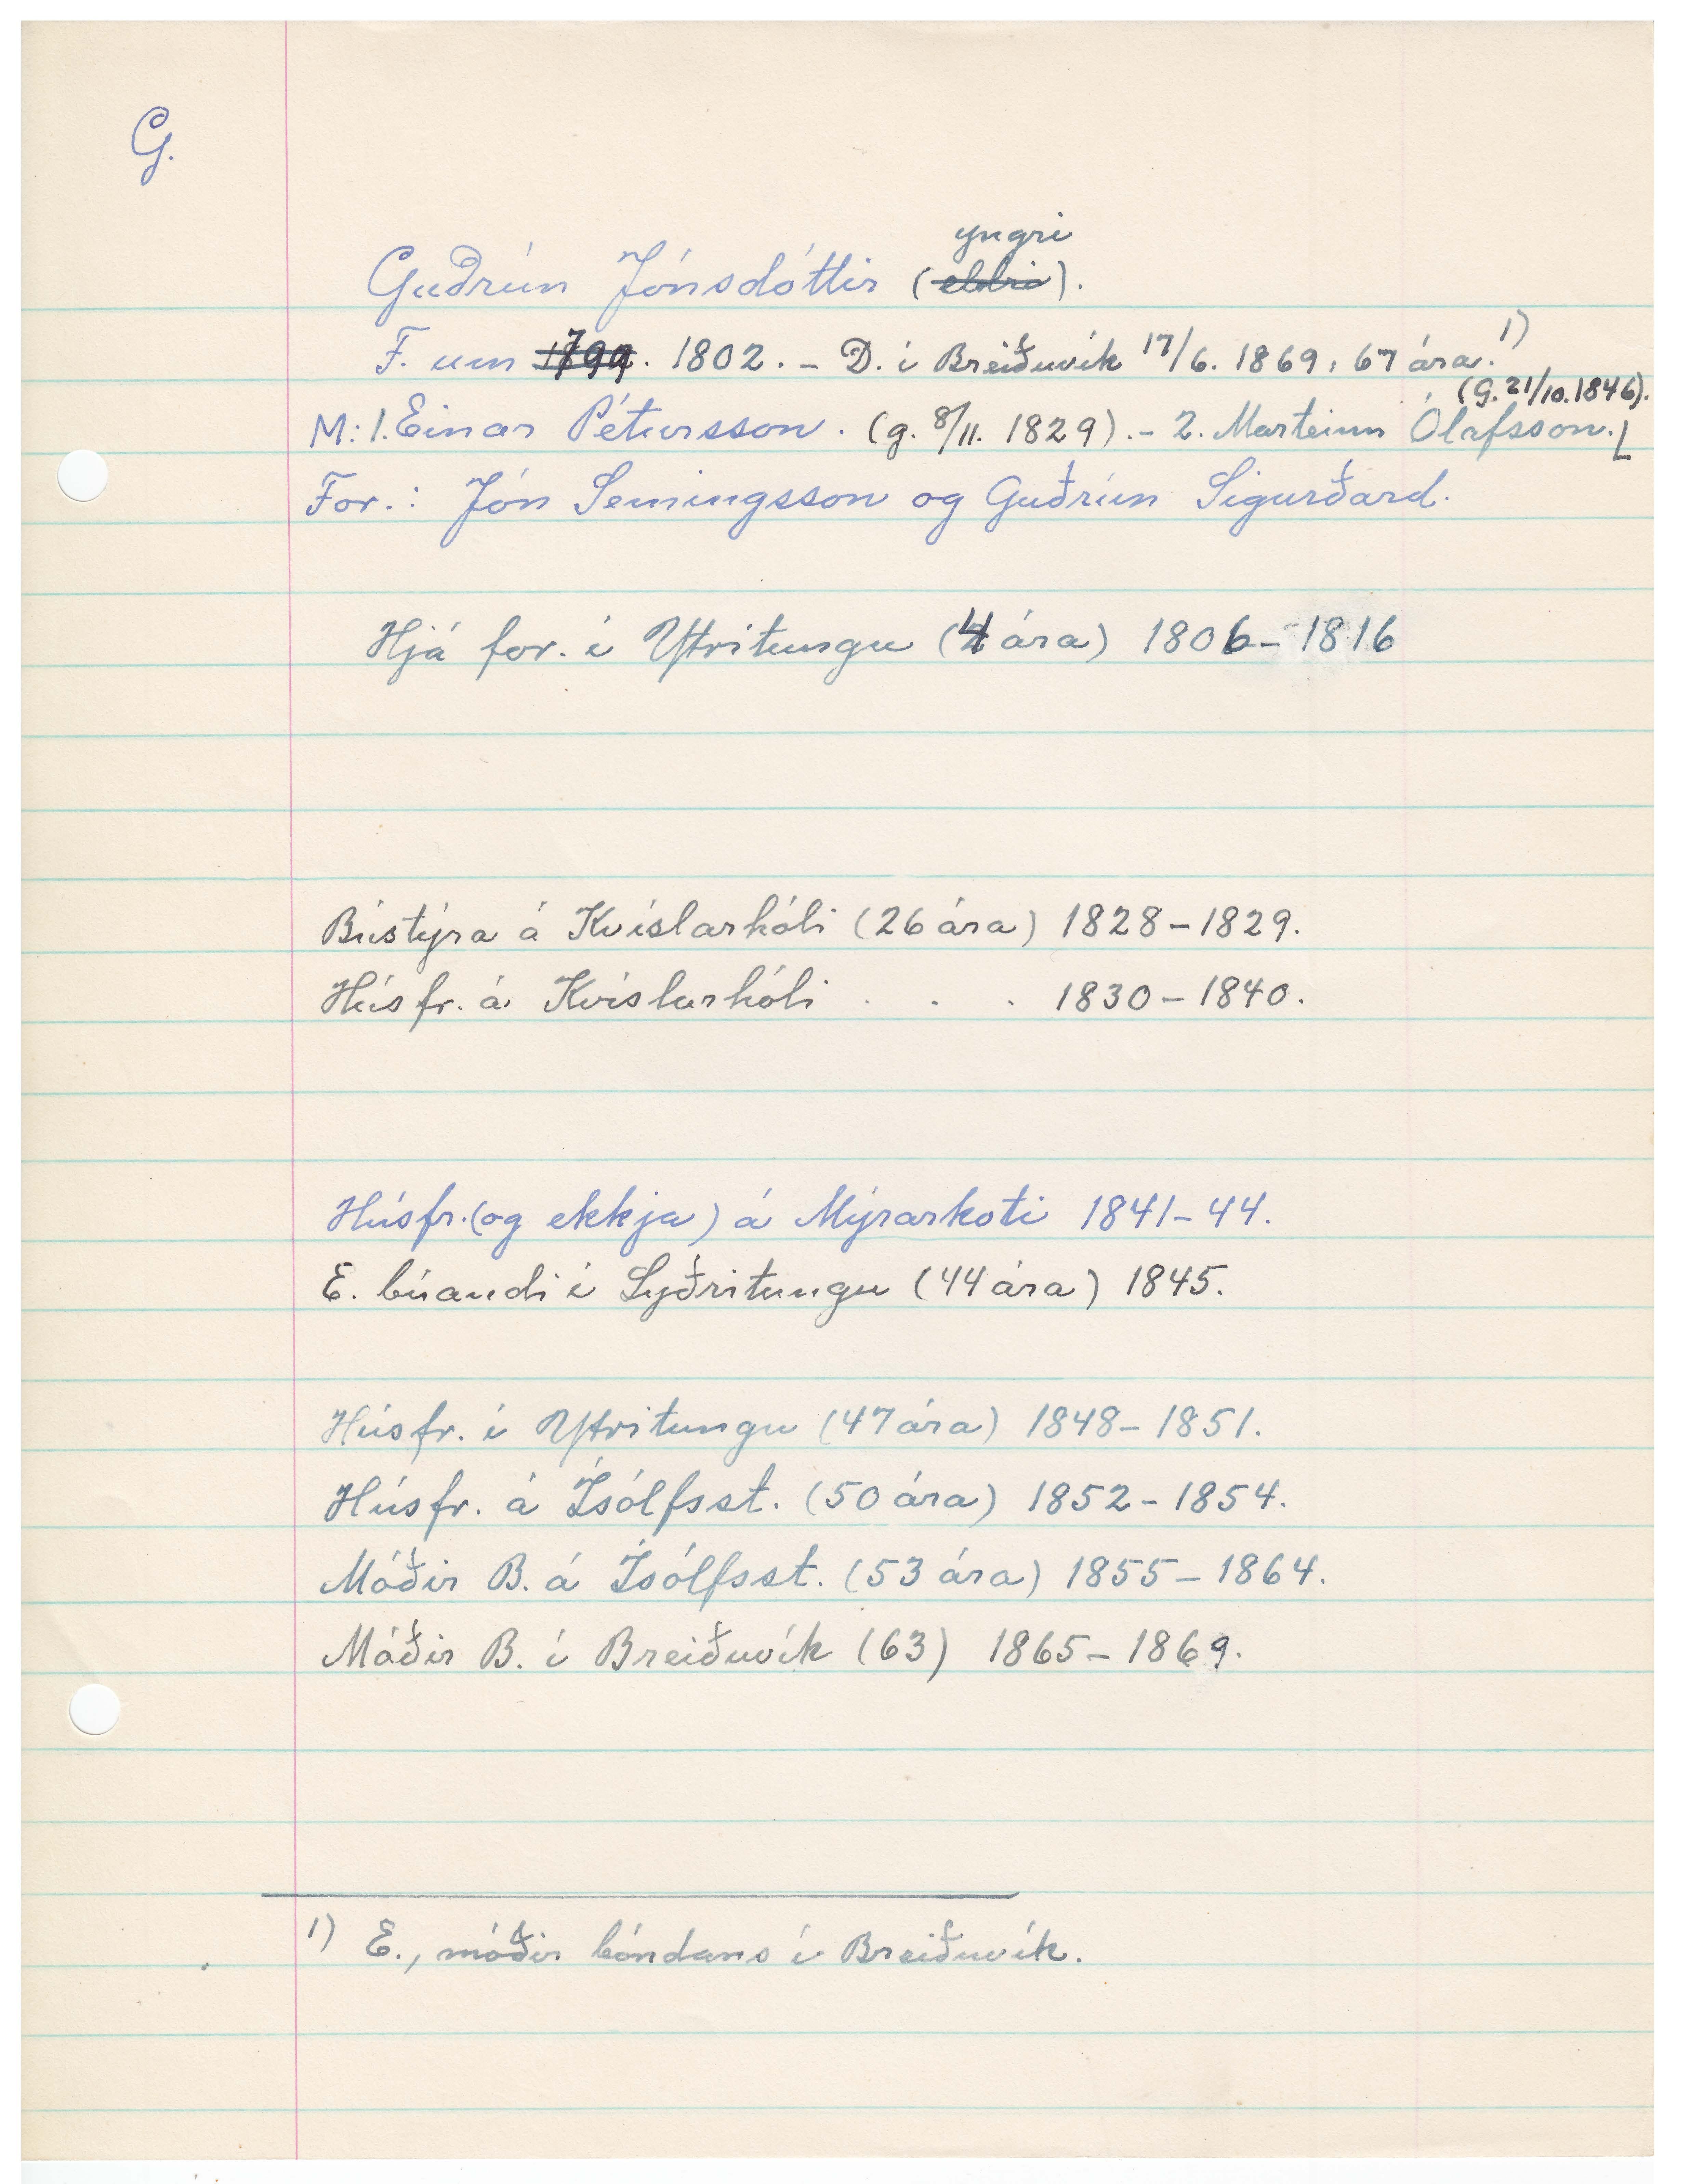 G.
yngri
Guðrún Jónsdóttir (eldri).
F. um 1799. 1802. - D. í Breiðuvík 17/6. 1869, 67 ára. 1)
(G. 21/10. 1846).
M: 1. Einar Pétursson. (g. 8/11. 1829). - 2. Marteinn Ólafsson.
For.: Jón Semingsson og Guðrún Sigurðard.
Hjá for. í Ytritungu (4 ára) 1806 - 1816
Bústýra á Kvíslarhóli (26 ára) 1828 - 1829.
Húsfr. á Kvíslarhóli . . . 1830 - 1840.
Húsfr. (og ekkja) á Mýrarkoti 1841 - 44.
E. búandi í Syðritungu (44 ára) 1845.
Húsfr. í Ytritungu (47 ára) 1848 - 1851.
Húsfr. á Ísólfsst. (50 ára) 1852 - 1854.
Móðir B. á Ísólfsst. (53 ára) 1855 - 1864.
Móðir B. í Breiðuvík (63) 1865 - 1869.
1) E., móðir bóndans í Breiðuvík.